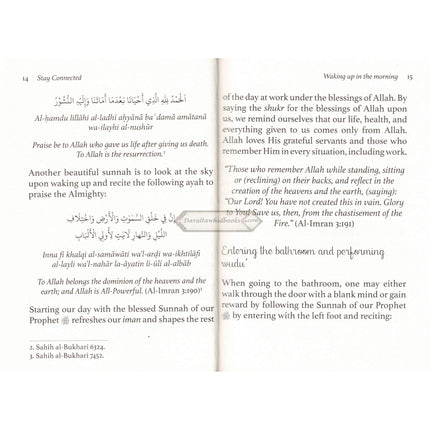 14 Stay Connected
الْحَمْدُ لِلَّهِ الَّذِي أَحْيَانَا بَعْدَمَا أَمَاتَنَا وَإِلَيْهِ النُّشُورُ
Al-ḥamdu lillāhi al-ladhi aḥyānā ba'damā amātanā
wa-ilayhi al-nushūr
Praise be to Allah who gave us life after giving us death.
To Allah is the resurrection.²
Another beautiful sunnah is to look at the sky
upon waking up and recite the following ayah to
praise the Almighty:
إِنَّ فِي خَلْقِ السَّمَوَتِ وَالْأَرْضِ وَاخْتِلَافِ
اللَّيْلِ وَالنَّهَارِ لَآيَتٍ لِأُولِي الْأَلْبَابِ
Inna fī khalqi al-samāwāti wa'l-arḍi wa-ikhtilāfi
al-layli wa'l-nahār la-āyatin li-ūli al-albāb
To Allah belongs the dominion of the heavens and the
earth; and Allah is All-Powerful. (Al-Imran 3:190)³
Starting our day with the blessed Sunnah of our
Prophet ﷺ refreshes our iman and shapes the rest
2. Sahih al-Bukhari 6324.
3. Sahih al-Bukhari 7452.
Waking up in the morning 15
of the day at work under the blessings of Allah. By
saying the shukr for the blessings of Allah upon
us, we remind ourselves that our life, health, and
everything given to us comes only from Allah.
Allah loves His grateful servants and those who
remember Him in every situation, including work.
"Those who remember Allah while standing, sitting
or (reclining) on their backs, and reflect in the
creation of the heavens and the earth, (saying):
"Our Lord! You have not created this in vain. Glory
to You! Save us, then, from the chastisement of the
Fire." (Al-Imran 3:191)
Entering the bathroom and performing
wudu'
When going to the bathroom, one may either
walk through the door with a blank mind or gain
reward by following the Sunnah of our Prophet
ﷺ by entering with the left foot and reciting:
Daraltawhidbooks.com